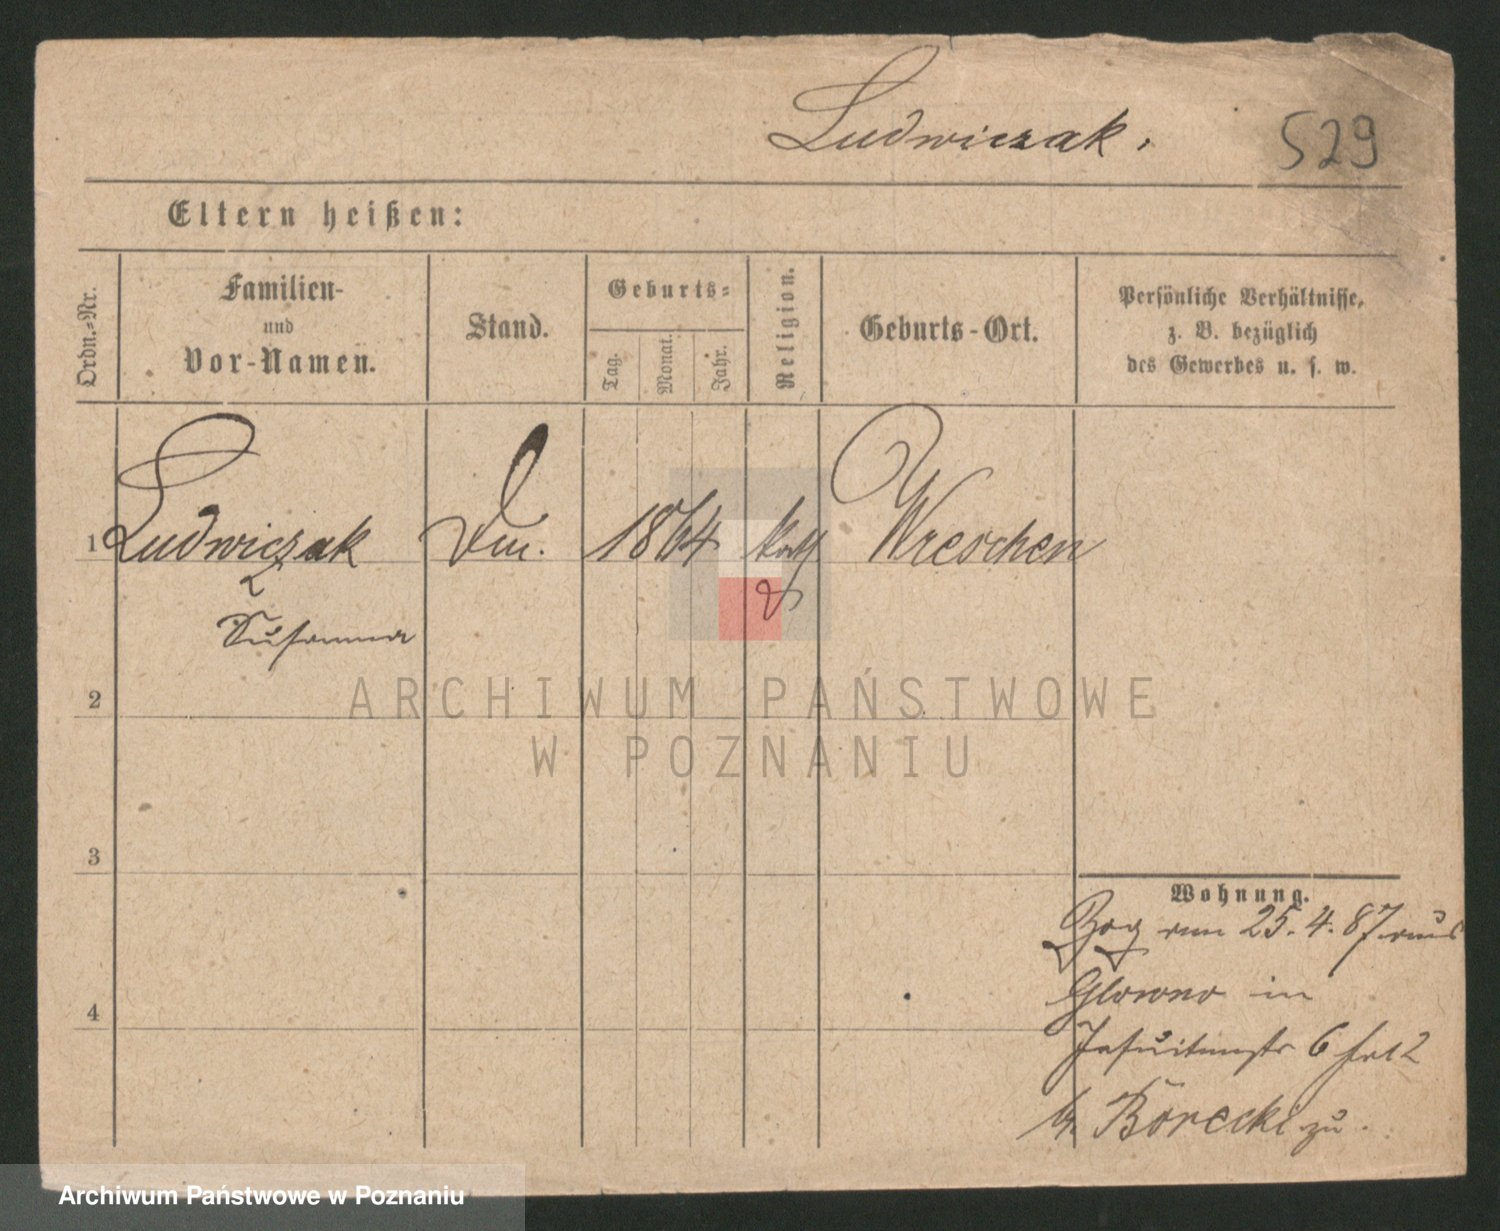 Ludwiczak.
529
Eltern heißen:
Ordn.-Nr.
Familien-
und
Vor-Namen.
Stand.
Geburts-
Tag.
Monat.
Jahr.
Religion.
Geburts-Ort.
Persönliche Verhältnisse,
z. B. bezüglich
des Gewerbes u. s. w.
1 Ludwiczak 1864 kath Wreschen
Susanna
2
3
4
Wohnung.
Zog am 25.4.87 aus
Glowno in
Jesuitenstr 6
b. Borecki zu.
ARCHIWUM PAŃSTWOWE
W POZNANIU
Archiwum Państwowe w Poznaniu